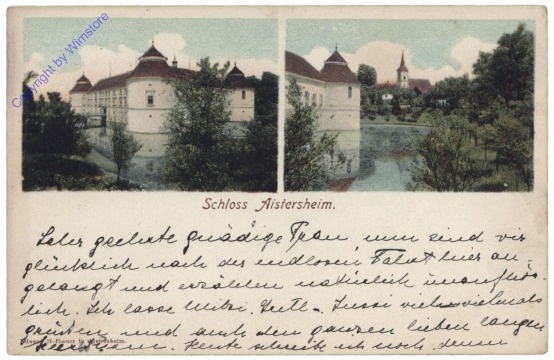 Copyright by Wimstore
Schloss Aistersheim.
Sehr geehrte gnädige Frau, nun sind wir
glücklich nach der endlosen Fahrt hier an-
gelangt und erzählen natürlich unaufhör-
lich. Ich lasse Mitzi, Gretl - Jussi viel vielmals
grüßen und auch den ganzen lieben langen
Heute schreibe ich noch denn
Hofbauer in Aistersheim.